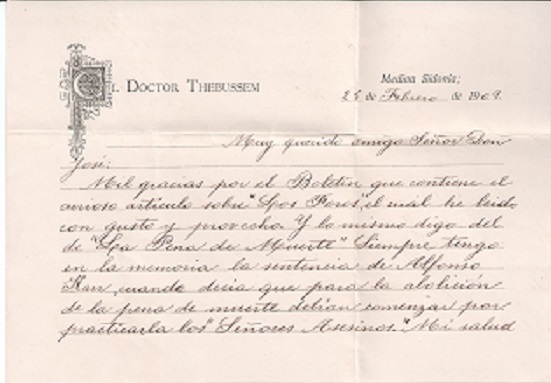 EL DOCTOR THEBUSSEM
Medina Sidonia;
25 de Febrero de 1909.
Muy querido amigo Señor Don
José:
Mil gracias por el Boletin que contiene el
curioso artículo sobre "Los Foros", el cuál he leido
con gusto y provecho. Y lo mismo digo del
de "La Pena de Muerte" Siempre tengo
en la memoria la sentencia de Alfonso
Karr, cuando decia que para la abolición
de la pena de muerte debian comenzar por
practicarla los "Señores Asesinos." Mi salud